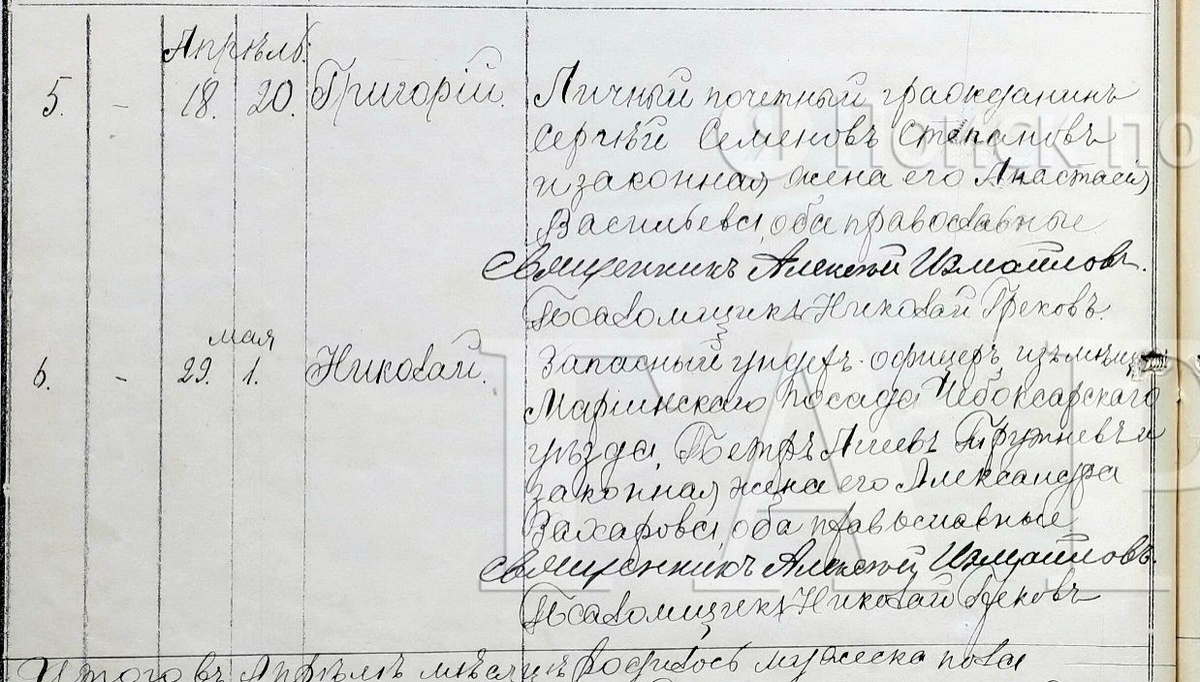 Апрѣль.
5. - 18. 20. Григорій. Личный почетный гражданинъ
Сергѣй Семеновъ Степановъ
и законная жена его Анастасія
Васильева, оба православные
Священникъ Алексій Измайловъ.
Псаломщикъ Николай Грековъ.
мая
6. - 29. 1. Николай. Запасный унтеръ-офицеръ, изъ мѣщ.
Маріинскаго Посада Чебоксарскаго
уѣзда, Петръ и
законная жена его Александра
Захарова, оба православные
Священникъ Алексій Измайловъ.
Псаломщикъ Николай Грековъ
Итого въ Апрѣлѣ мѣсяцѣ родилось мужеска пола
Поиск по